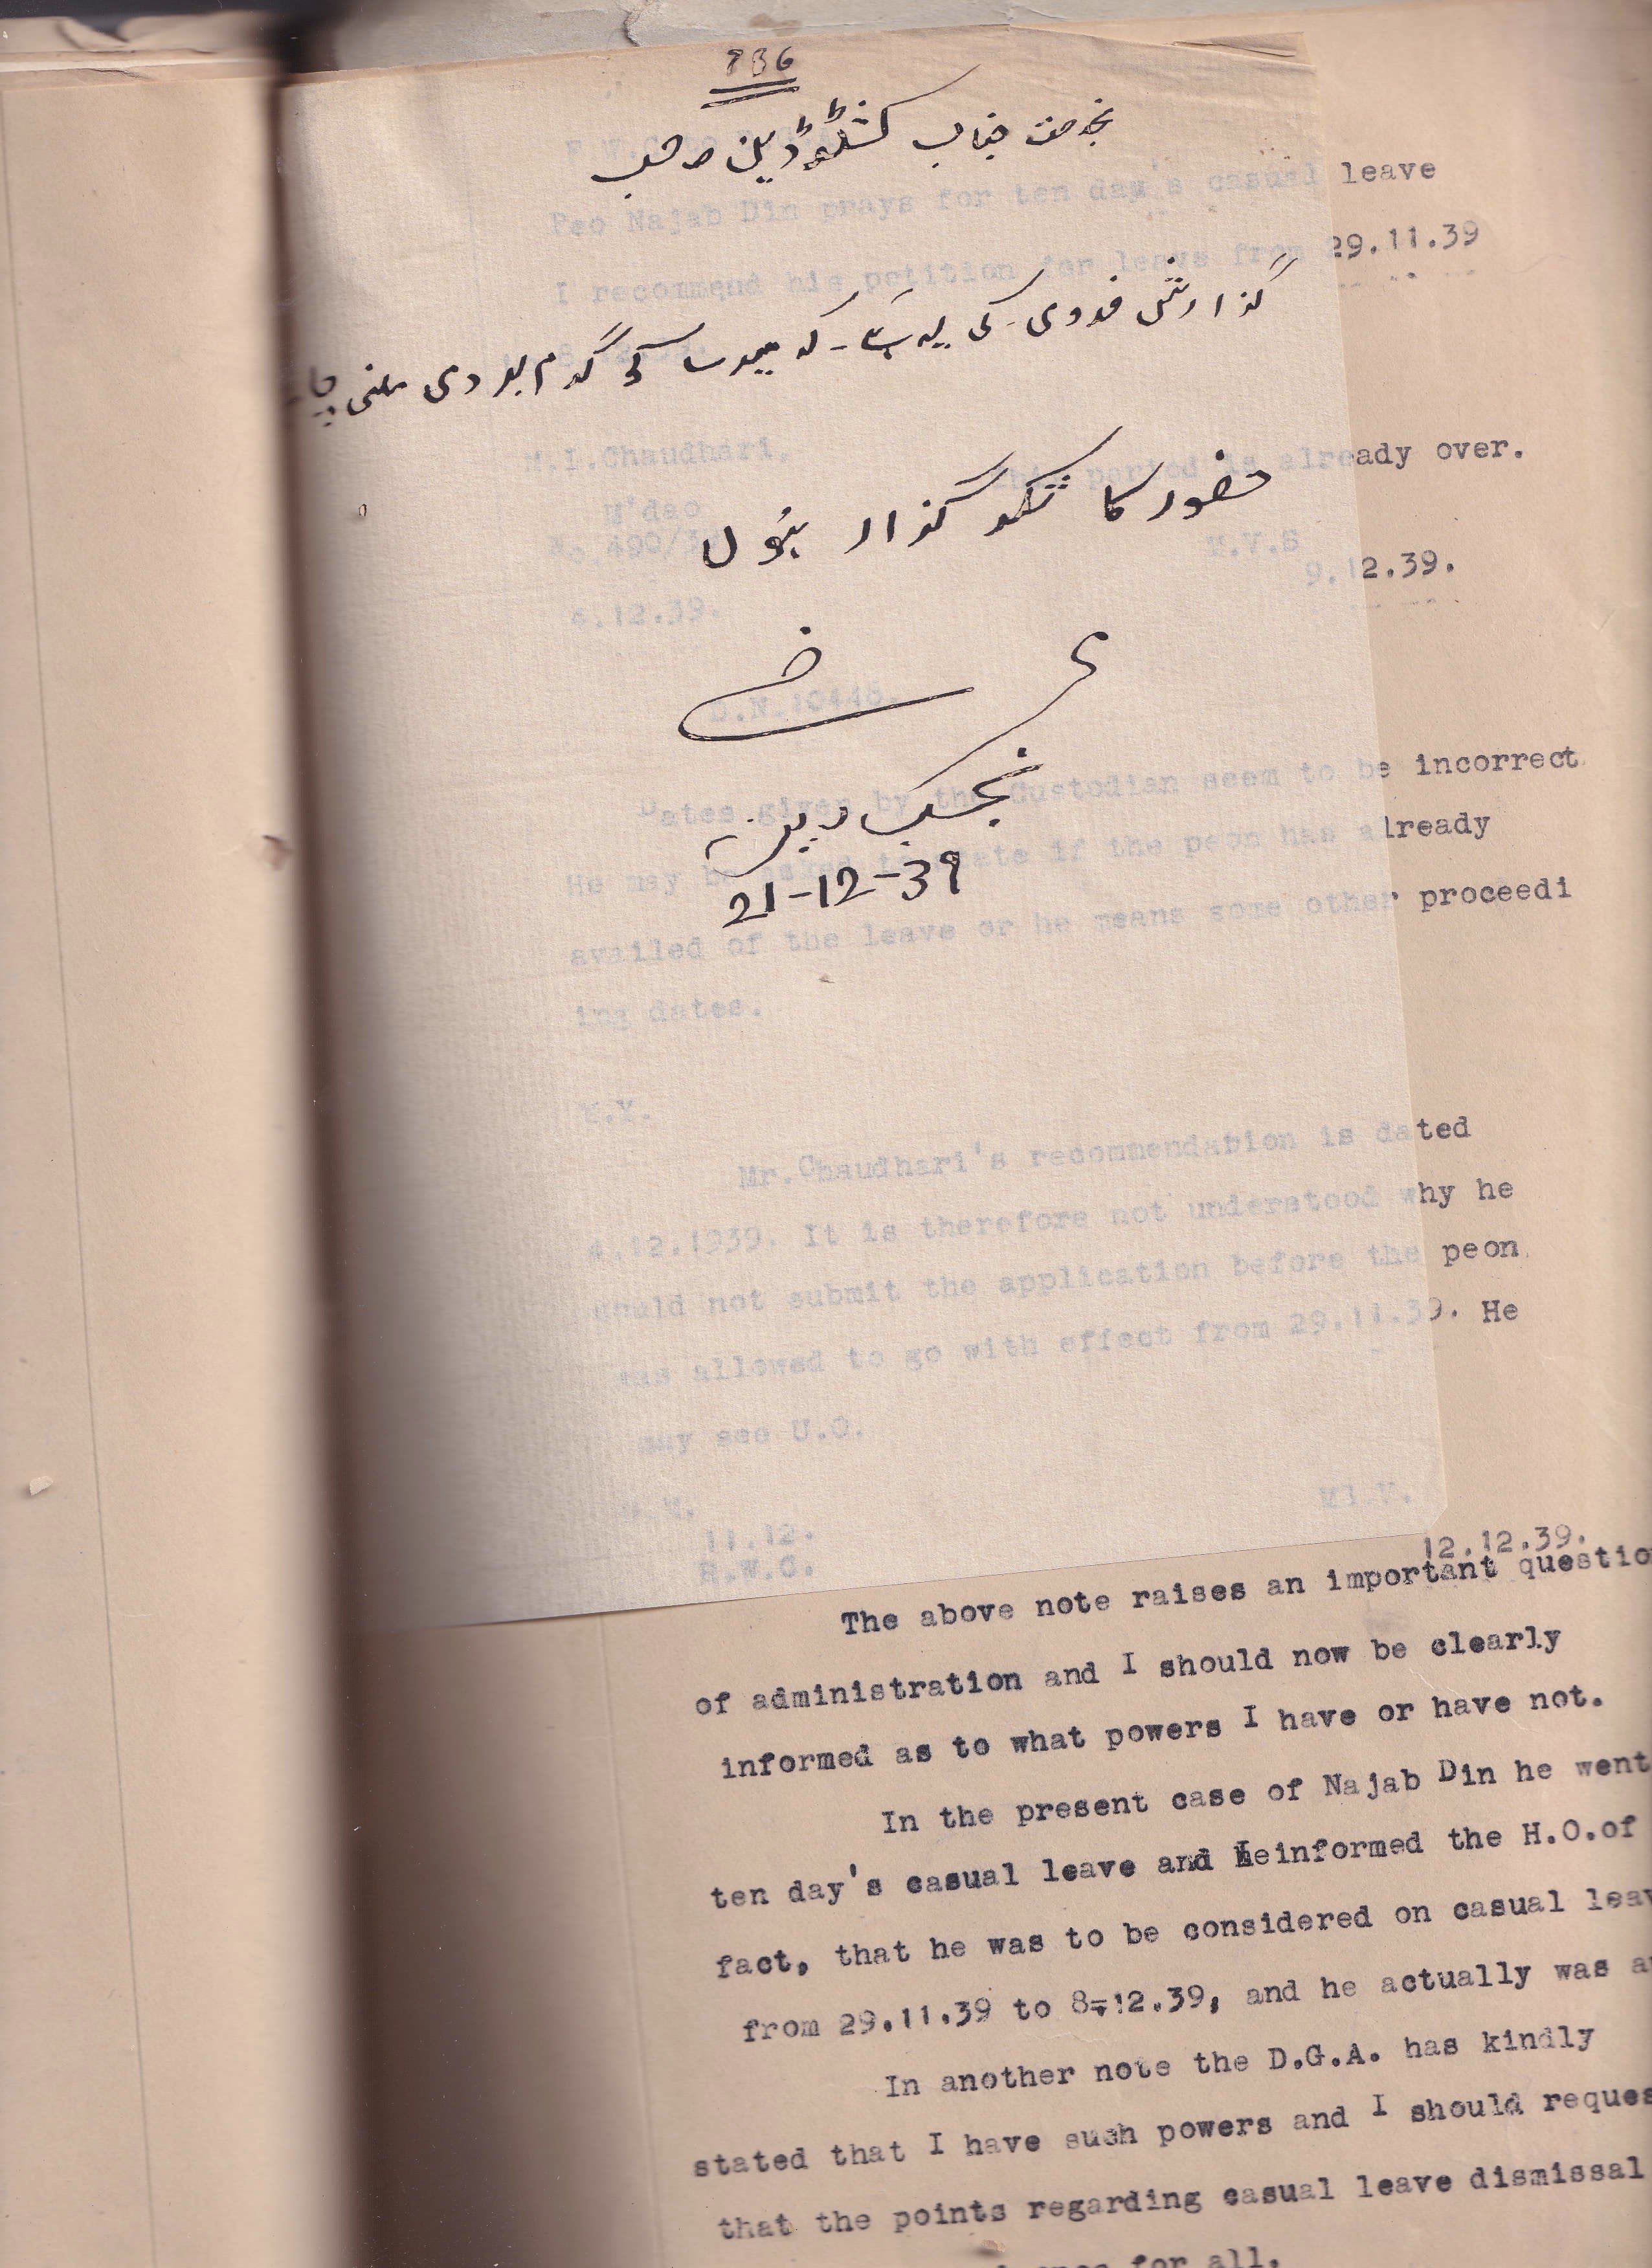 786
بخدمت جناب کسٹوڈین صاحب
گذارش فدوی کی یہ ہے۔ کہ مجھے گرم وردی ملنی
حضور کا شکر گذار ہوں
عرض
نجب دین
21-12-39
Peo Najab Din prays for ten day's casual leave
I recommend his petition for leave from 29.11.39
M.I.Chaudhari.
This period is already over.
M'dao
No. 490/
M.V.S
4.12.39.
9.12.39.
D.N.10445.
Dates given by the Custodian seem to be incorrect.
He may be asked to state if the peon has already
availed of the leave or he means some other proceedi
ing dates.
M.Y.
Mr.Chaudhari's recommendation is dated
4.12.1939. It is therefore not understood why he
could not submit the application before the peon
was allowed to go with effect from 29.11.39. He
may see U.O.
11.12.
R.W.C.
12.12.39.
The above note raises an important questio
of administration and I should now be clearly
informed as to what powers I have or have not.
In the present case of Najab Din he went
ten day's casual leave and informed the H.O.of
fact, that he was to be considered on casual leav
from 29.11.39 to 8.12.39, and he actually was a
In another note the D.G.A. has kindly
stated that I have such powers and I should reques
that the points regarding casual leave dismissal
for all.